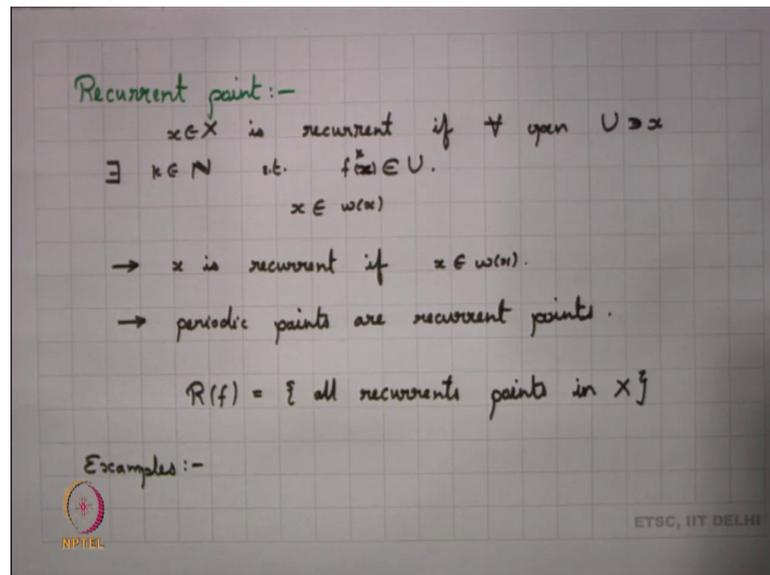 Recurrent point:-
x∈X is recurrent if ∀ open U∋x
∃ k∈N s.t. f^k(x)∈U.
x∈ω(x)
→ x is recurrent if x∈ω(x).
→ periodic points are recurrent points.
R(f) = { all recurrents points in X}
Examples:-
ETSC, IIT DELHI
NPTEL